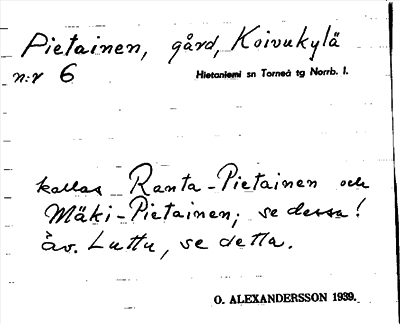 Pietainen, gård, Koivukylä
n:r 6
Hietaniemi sn Torneå tg Norrb. l.
kallas Ranta-Pietainen och
Mäki-Pietainen, se dessa!
äv. Luttu, se detta.
O. ALEXANDERSSON 1939.